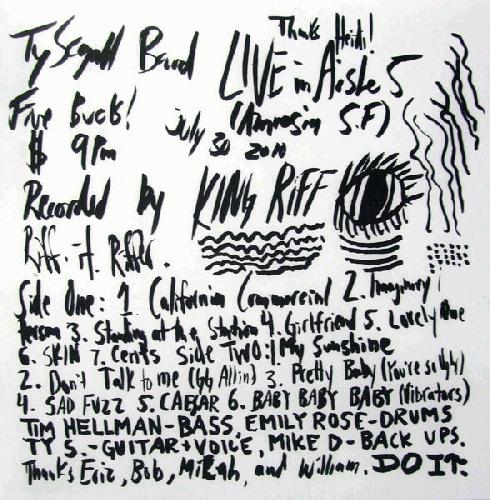 Ty Segall Band
Thanks Heidi!
LIVE in Aisle 5
Five Bucks!
(Amnesia S.F)
$ 9Pm
July 30 2010
Recorded by KING RIFF
Riff. it. Riffer.
Side One: 1. California Commercial 2. Imaginary
Person 3. Standing at the Station 4. Girlfriend 5. Lovely One
6. SKIN 7. Cents Side TWO: 1. My Sunshine
2. Don't Talk to me (GG Allin) 3. Pretty Baby (You're so Ugly)
4. SAD FUZZ 5. CAESAR 6. BABY BABY BABY (Vibrators)
TIM HELLMAN-BASS, EMILY ROSE-DRUMS
TY S.-GUITAR+VOICE, MIKE D-BACK UPS.
Thanks Eric, Bob, Mikah, and William. DO IT.